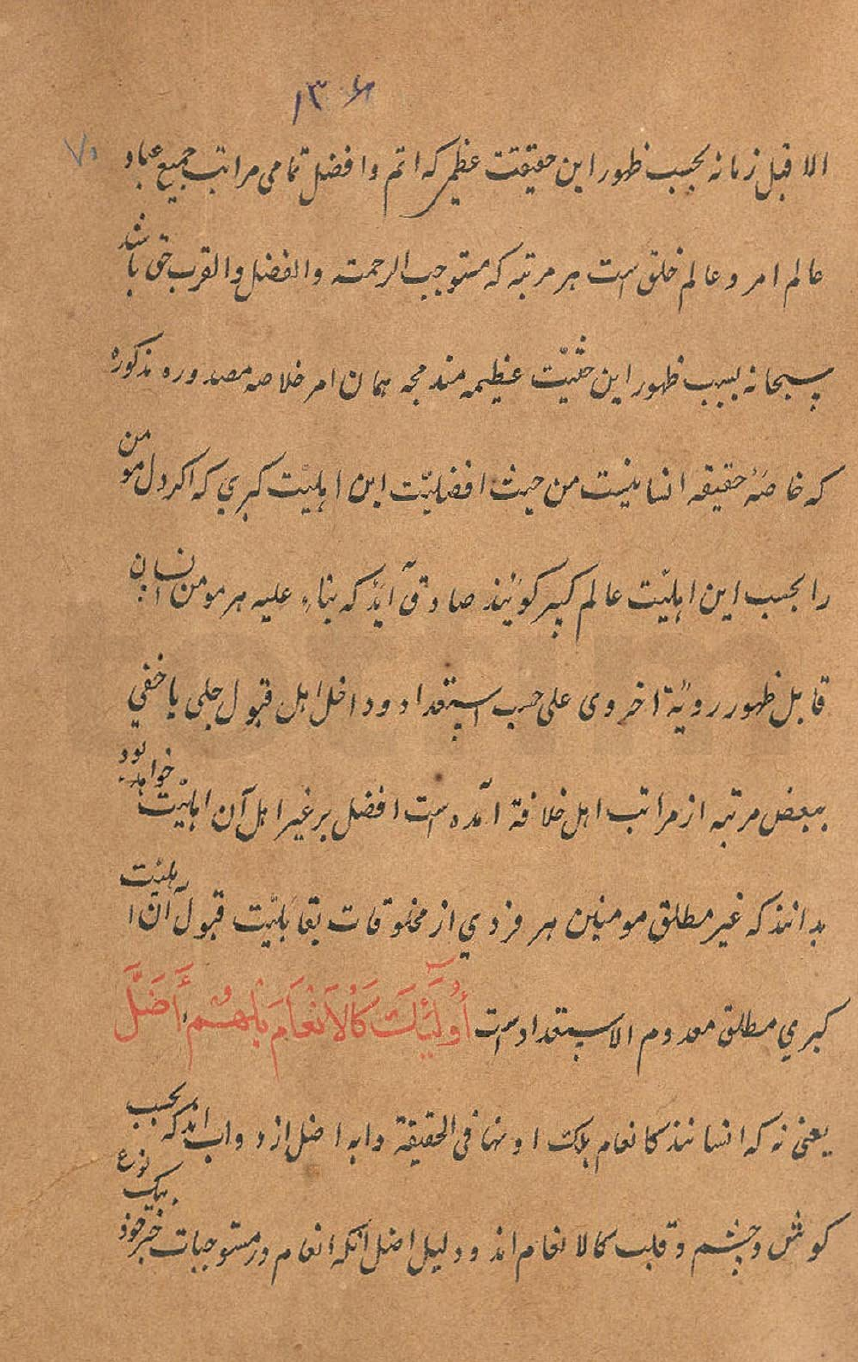 ۱۳۶
۷۰
الا قبل زمانه بحسب ظهور این حقیقت عظمی که اتم وافضل تمامی مراتب جمیع عباد
عالم امر و عالم خلق است هر مرتبه که مستوجب الرحمته والفضل والقرب حق باشد
سبحانه بسبب ظهور این حقیّت عظیمه مندمجه همان امر خلاصه مصدوره مذکوره
که خاصّۀ حقیقه انسانیست من حیث افضلیّت این اهلیّت کبري که اکر دل مومن
را بحسب این اهلیّت عالم کبیر کویند صادق آید که بناء علیه هر مومن انسان
قابل ظهور رویة اخروی علی حسب استعداد و داخل اهل قبول جلی یا خفي
ببعض مرتبه از مراتب اهل خلافة آمده است افضل بر غیر اهل آن اهلیّت خواهد بود
بدانند که غیر مطلق مومنین هر فردي از مخلوقات بقابلیّت قبول آن اهلیّت
کبري مطلق معدوم الاستعداد است أُولَٰئِكَ كَالْأَنْعَامِ بَلْ هُمْ أَضَلُّ
یعنی نه که انسانند کانعام بلک اونها فی الحقیقة دابه اضل از دواب اند که بحسب
کوش و چشم و قلب کالانعام اند و دلیل اضل آنکه انعام در مستوجبات خیر خود بیک نوع